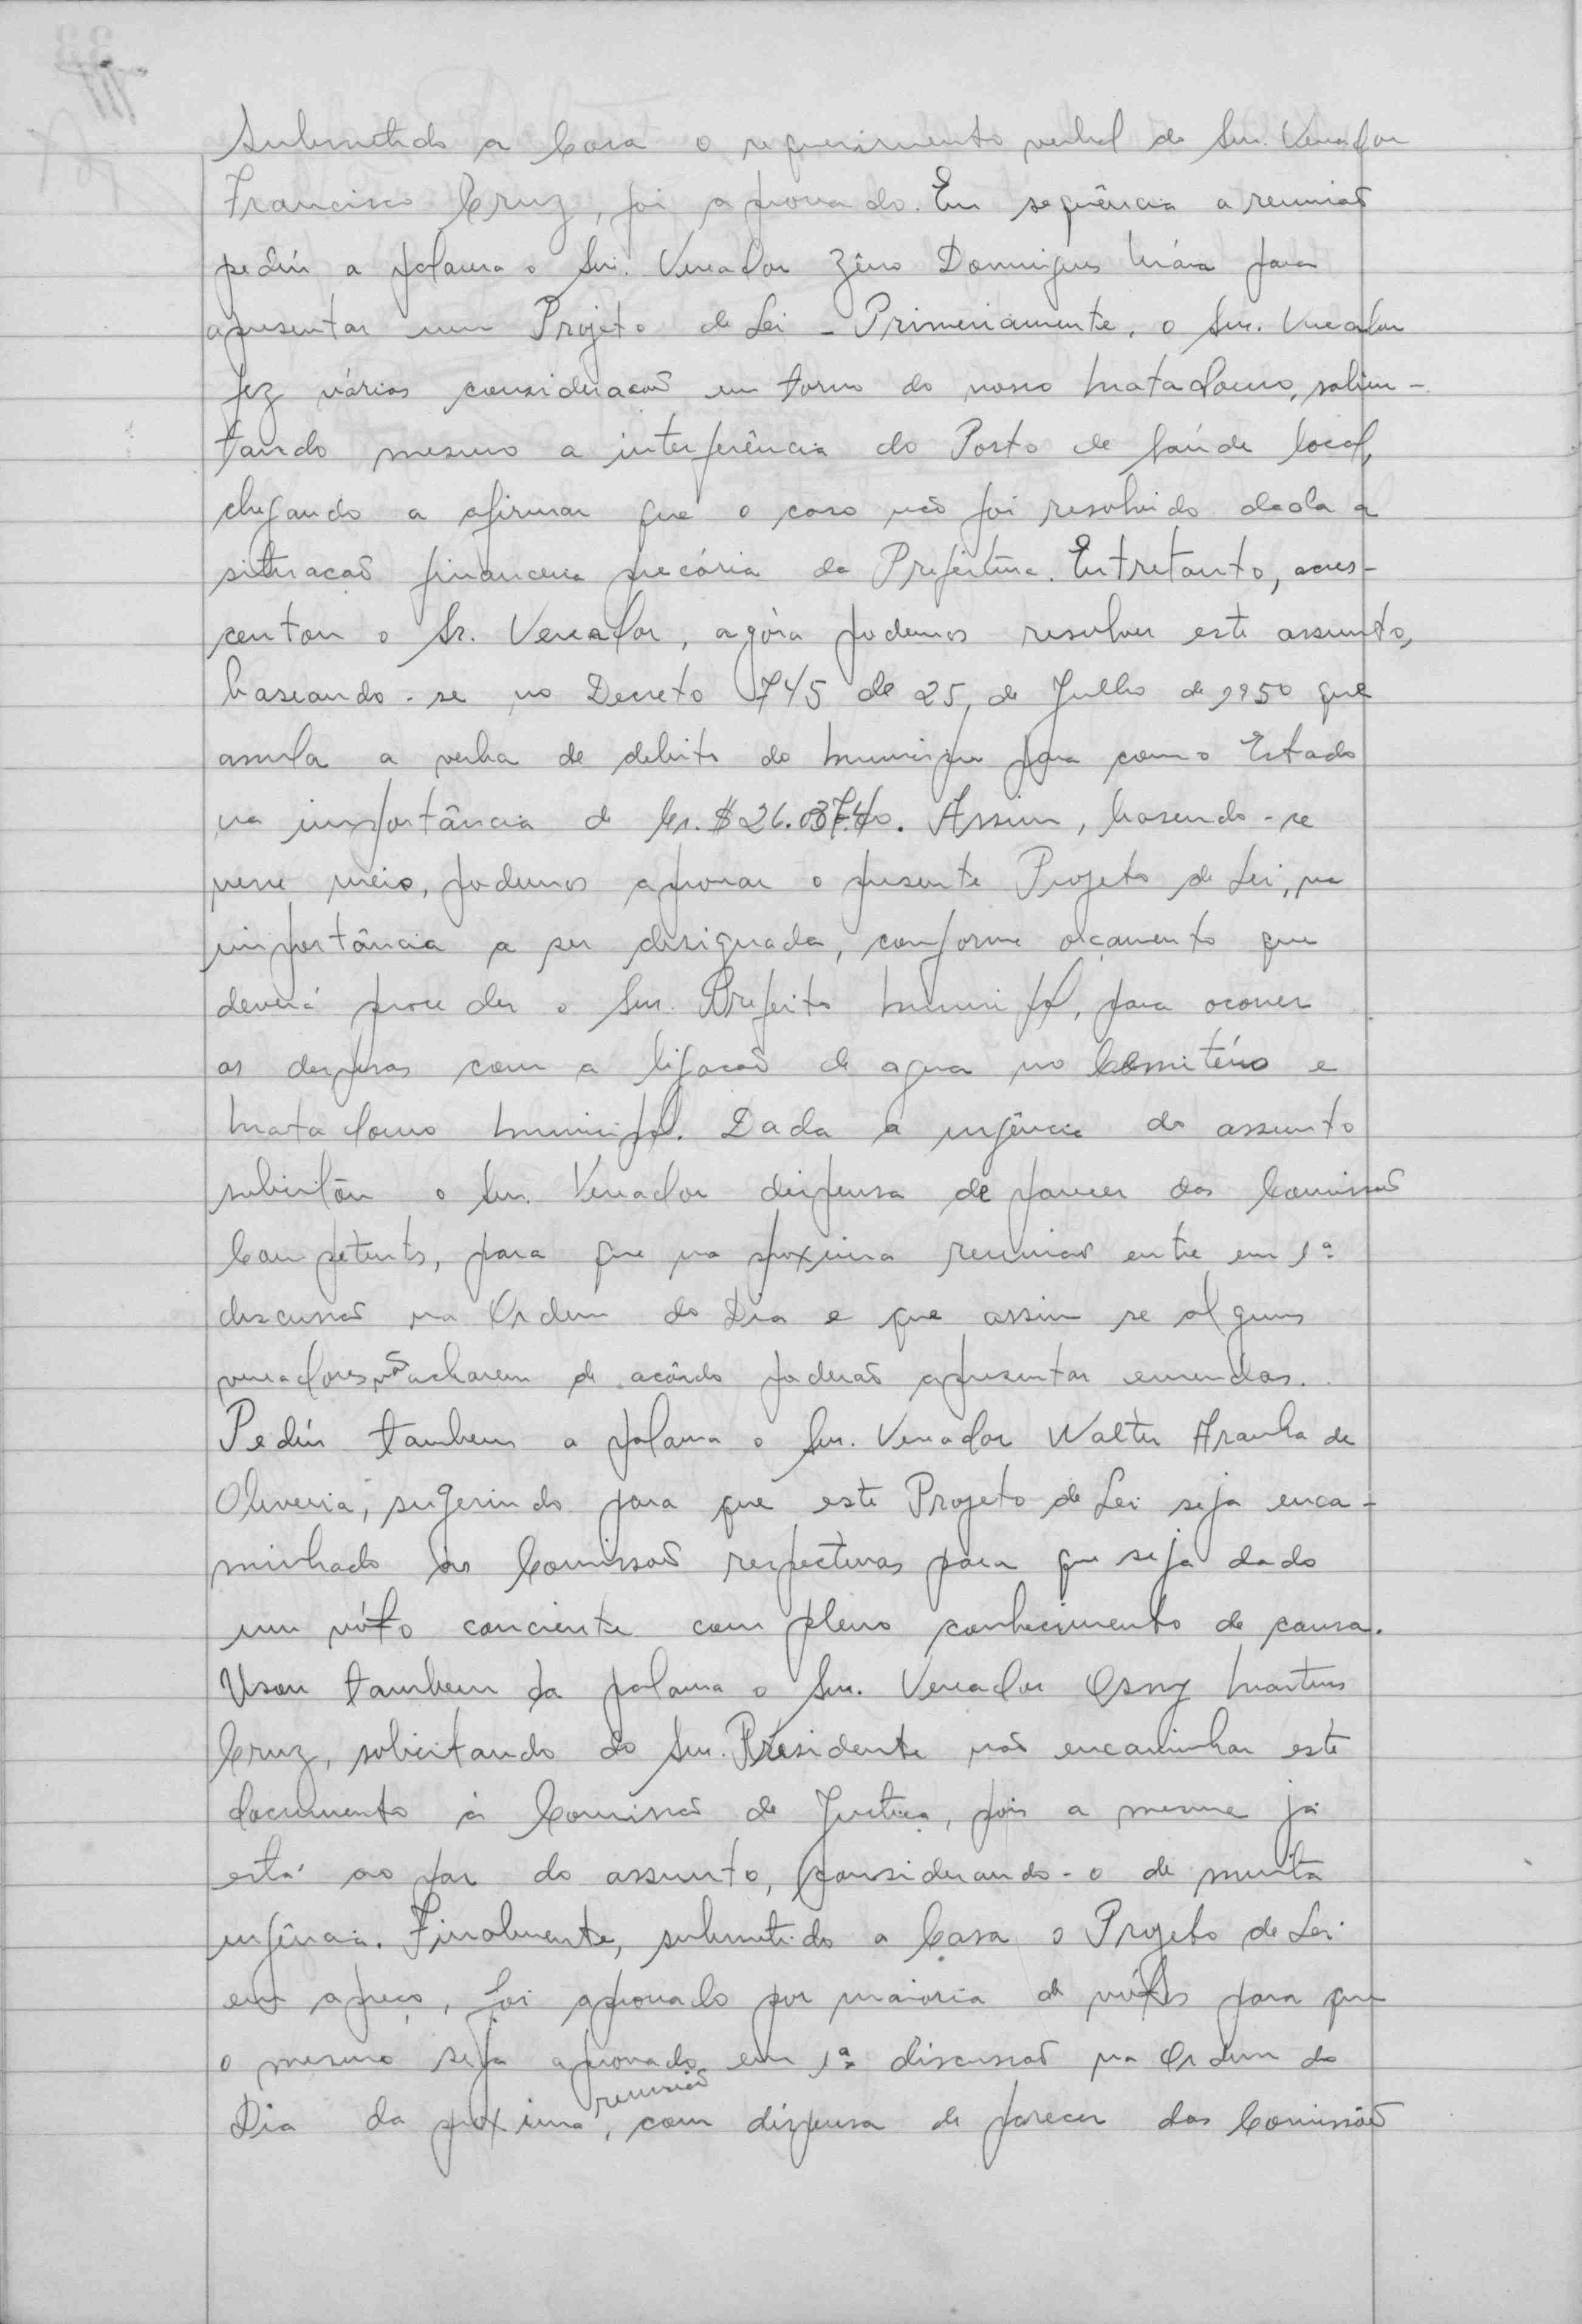 Submetido a Casa o requerimento verbal do Snr. Vereador
Francisco Cruz, foi aprovado. Em sequência a reunião
pediu a palavra o Snr. Vereador Zêno Domingues Maia para
apresentar um Projeto de Lei - Primeiramente, o Snr. Vereador
fez várias considerações em torno do nosso Matadouro, salien-
tando mesmo a interferência do Posto de Saúde local,
chegando a afirmar que o caso não foi resolvido dada a
situação financeira precária da Prefeitura. Entretanto, acres-
centou o Sr. Vereador, agóra podemos resolver este assunto,
baseando-se no Decreto 745 de 25, de Julho de 1950 que
anula a verba de debito do Municipio para com o Estado
na importância de Cr.$ 26. Assim, basendo-se
nesse meio, podemos aprovar o presente Projeto de Lei, na
importância a ser designada, conforme orçamento que
deverá proceder o Snr. Prefeito Municipal, para ocorrer
as despesas com a ligação de agua no Cemitério e
Matadouro Municipal. Dada a urgência do assunto
solicitou o Snr. Vereador dispensa de parecer das Comissões
Competents, para que na proxima reunião entre em 1ª
discussão na Ordem do Dia e que assim se alguns
vereadores não acharem de acôrdo poderão apresentar emendas.
Pediu tambem a palavra o Snr. Vereador Walter Aranha de
Oliveira, sugerindo para que este Projeto de Lei seja enca-
minhado ás Comissões respectivas para que seja dado
um vóto conciente com pleno conhecimento de causa.
Usou tambem da palavra o Snr. Vereador Osny Martins
Cruz, solicitando do Snr. Presidente não encaminhar este
documento á Comissão de Justiça, pois a mesma já
está ao par do assunto, considerando-o de muita
urgência. Finalmente, submetido a Casa o Projeto de Lei
em apreço, foi aprovado por maioria de vótos para que
o mesmo seja aprovado em 1ª discussão na Ordem do
Dia da proxima reunião, com dispensa de parecer das Comissões